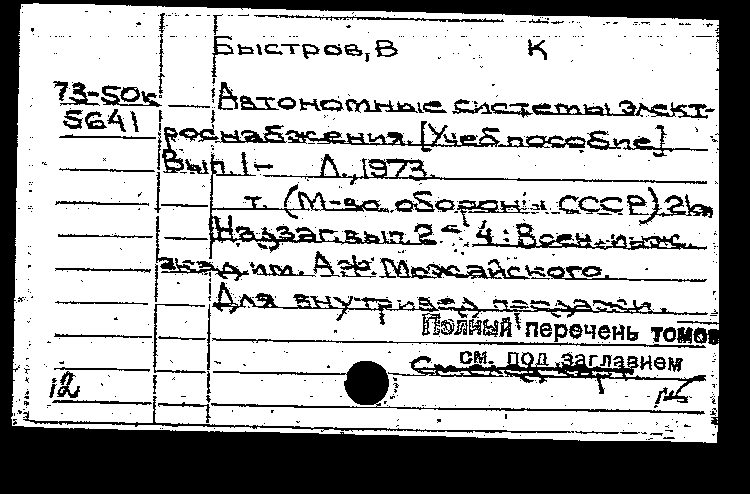 Быстров, В К
73-50к Автономные системы элект-
5641 роснабжения. [Учеб пособие]
Вып. 1- Л., 1973.
т. (М-во обороны СССР) 21см
Надзаг. вып. 2-4: Воен.-инж.
акад. им. А Ф Можайского.
Для внутривед продажи.
Полный перечень томов
см. под заглавием
См след карт
12